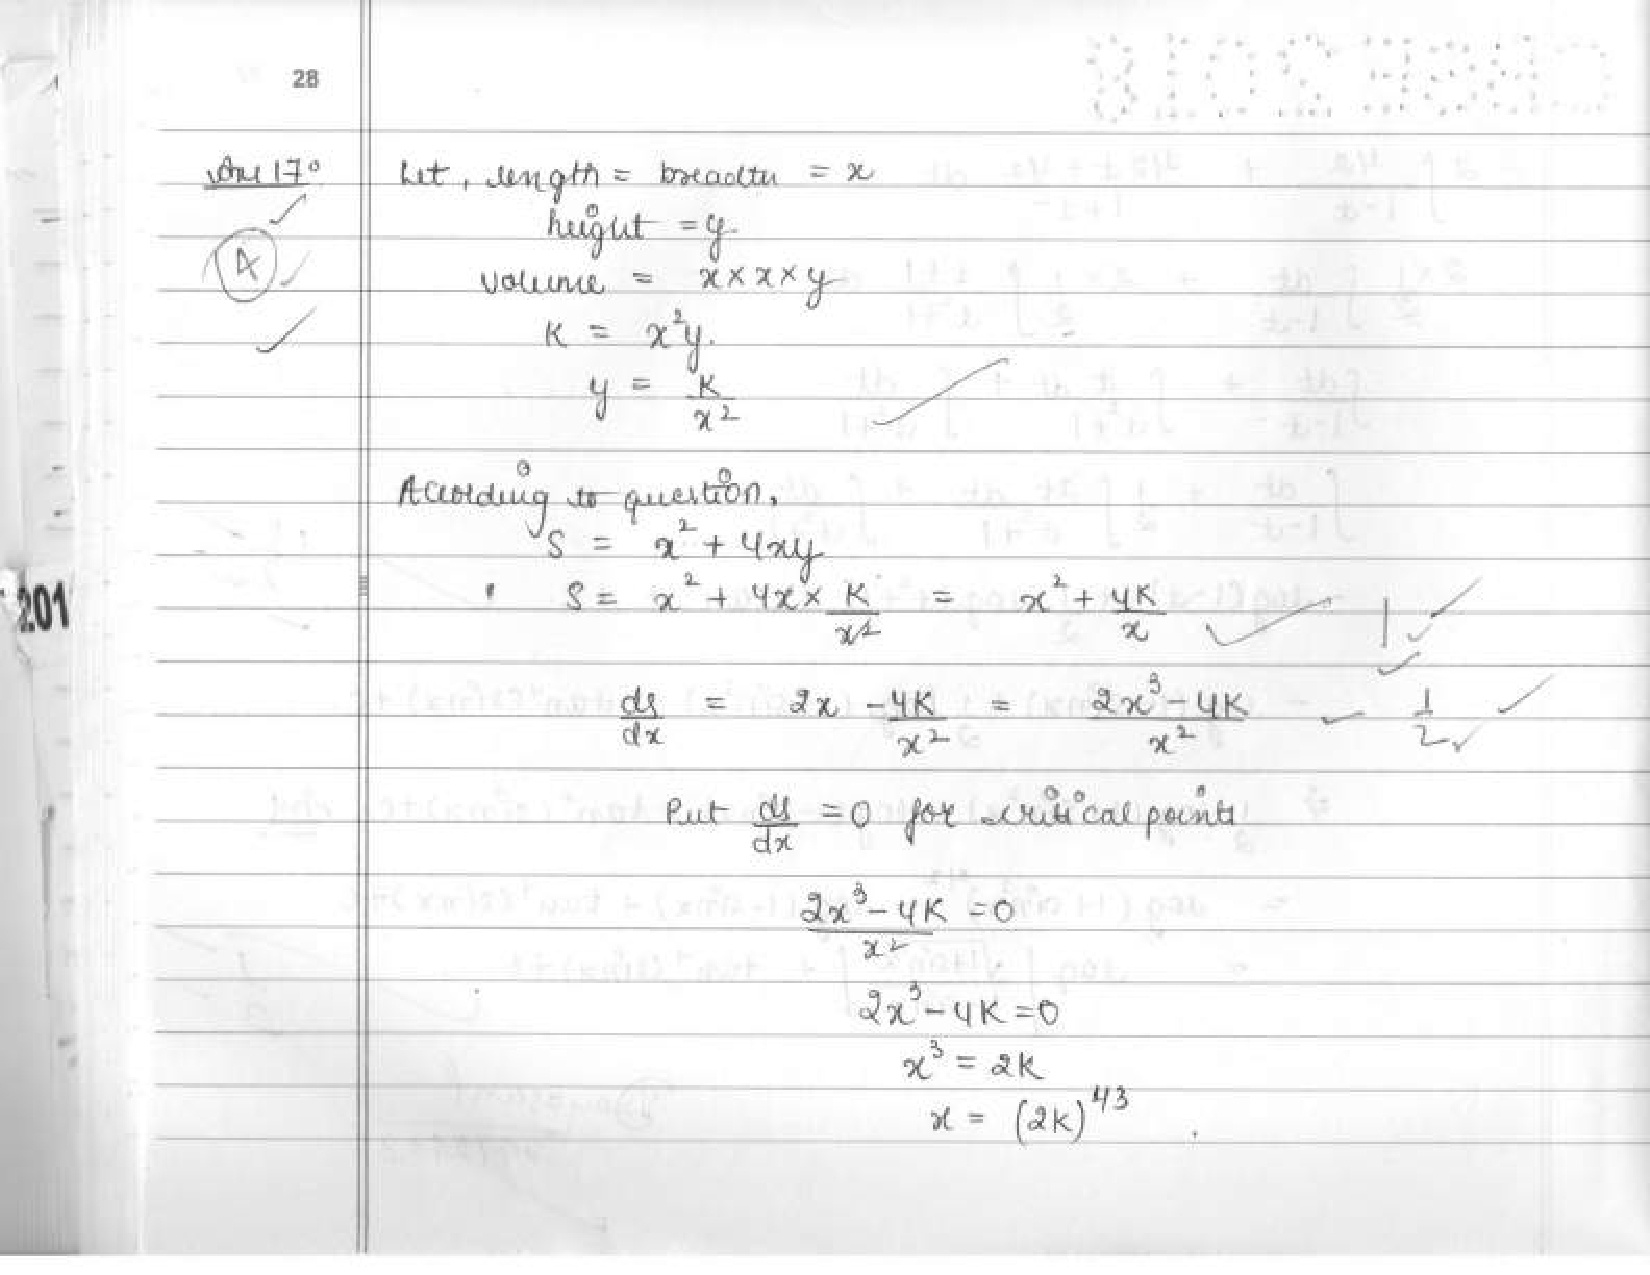 28
CBSE 2018
Ans 17° Let, length = breadth = x
height = y
A
volume = x × x × y
K = x²y.
y = K/x²
According to question,
S = x² + 4xy
201
S = x² + 4x × K/x² = x² + 4K/x 1
ds/dx = 2x - 4K/x² = 2x³ - 4K/x² 1/2
Put ds/dx = 0 for critical points
2x³ - 4K/x² = 0
2x³ - 4K = 0
x³ = 2K
x = (2K)^1/3